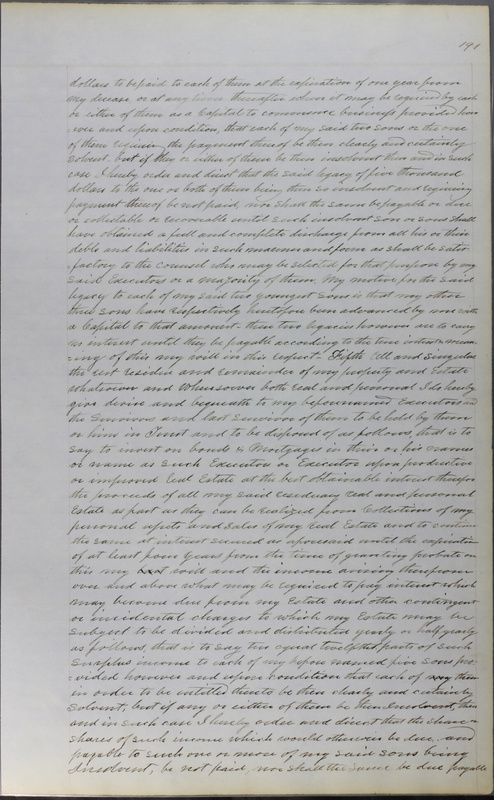 191
dollars to be paid to each of them at the expiration of one year from
my decease or at any time thereafter when it may be required by each
or either of them as a Capital to commence business provided how
ever and upon condition, that each of my said two sons or the one
of them requiring the payment thereof be then clearly and certainly
solvent. but if they or either of them be then insolvent then and in such
case I hereby order and direct that the said legacy of five thousand
dollars to the one or both of them being then so insolvent and requiring
payment thereof be not paid, nor shall the same be payable or due
or collectable or recoverable until such insolvent son or sons shall
have obtained a full and complete discharge from all his or their
debts and liabilities in such manner and form as shall be satis
factory to the Counsel who may be selected for that purpose by my
said Executors or a majority of them. My motive for the said
legacy to each of my said two youngest sons is that my other
three sons have respectively heretofore been advanced by me with
a Capital to that amount. these two legacies however are to carry
no interest until they be payable according to the true intent & mean
ing of this my will in this respect. Fifth All and singular
the rest residue and remainder of my property and Estate
whatsoever and wheresoever both real and personal I do hereby
give devise and bequeath to my before named Executors and
the Survivors and last Survivor of them to be held by them
or him in Trust and to be disposed of as follows, that is to
say to invest on bonds & Mortgages in their or his names
or name as such Executors or Executor upon productive
or improved Real Estate at the best obtainable interest therefor
the proceeds of all my said residuary real and personal
Estate as fast as they can be realized from Collections of my
personal assets and sales of my Real Estate and to continue
the same at interest secured as aforesaid until the expiration
of at least four years from the time of granting probate on
this my will and the income arising therefrom
over and above what may be required to pay interest which
may become due from my Estate and other contingent
or incidental charges to which my Estate may be
subject to be divided and distributed yearly or half yearly
as follows, that is to say two equal twelfths parts of such
Surplus income to each of my before named five sons pro
vided however and upon condition that each of them
in order to be entitled thereto be then clearly and certainly
solvent, but if any or either of them be then Insolvent, then
and in such case I hereby order and direct that the share or
shares of such income which would otherwise be due and
payable to such one or more of my said sons being
Insolvent, be not paid, nor shall the same be due payable